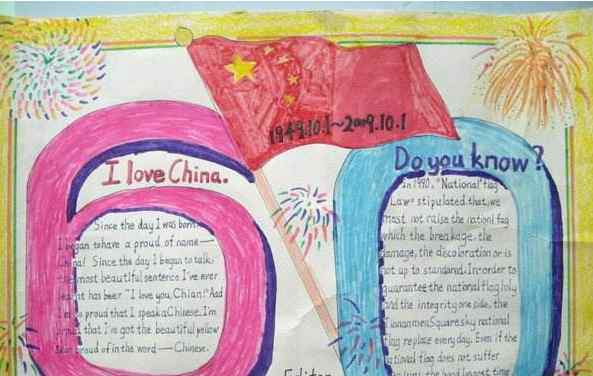 1949.10.1~2009.10.1
I love China.
Since the day I was born
I began to have a proud of name—
China! Since the day I began to talk,
the most beautiful sentence I've ever
has been "I love you, Chian!" And
proud that I speak a Chinese. I'm
that I've got the beautiful yellow
proud of in the word—Chinese.
Do you know?
In 1990, "National flag
Law" stipulated that, we
must not raise the nationl fag
which the breakage, the
damage, the discoloration or is
not up to standard. In order to
guarantee the national flag holy
and the integrity one side, the
Square sky national
flag replace everyday. Even if the
national flag does not suffer
the longest time
Editor